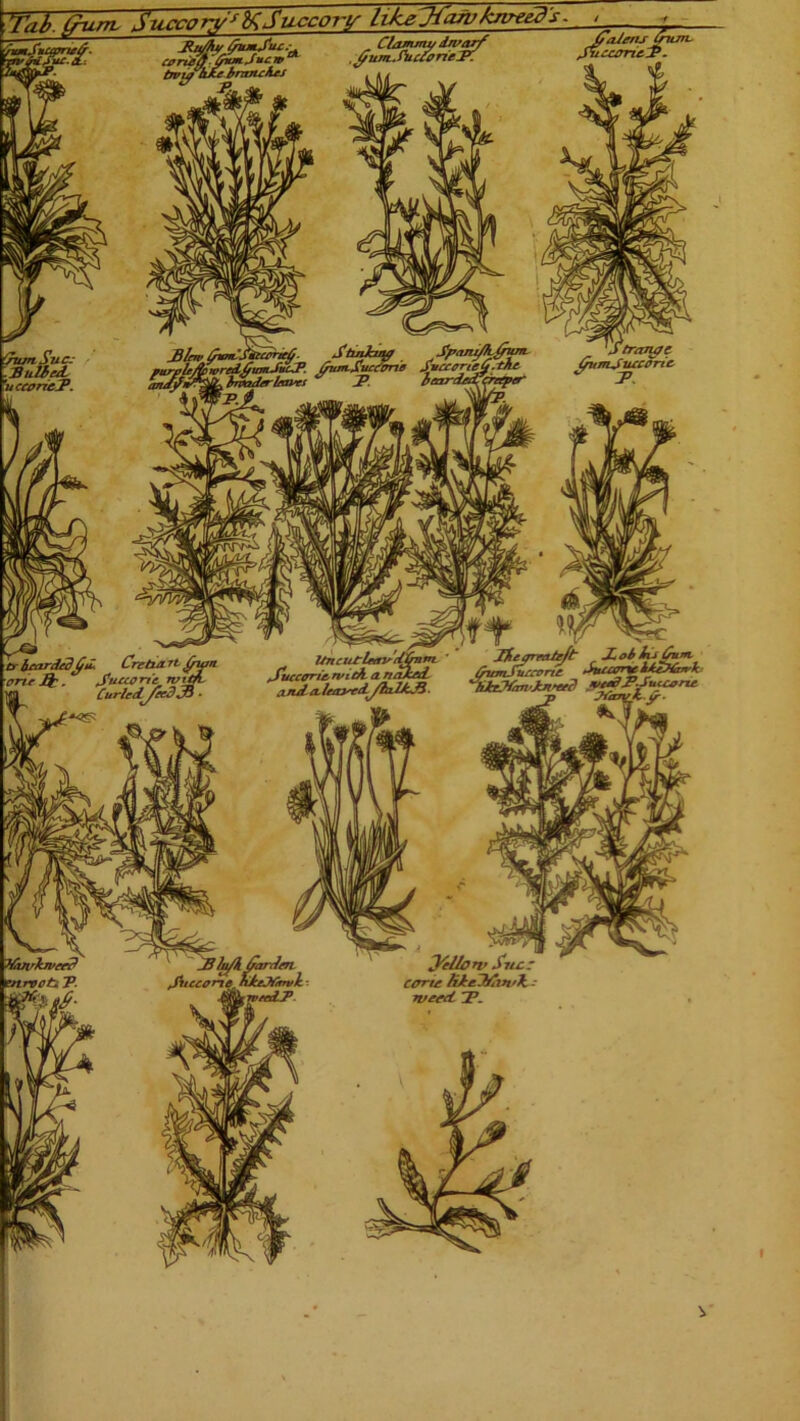 Tab. Gum Succory's & Succory like Hawkweed's.
Gum Succorie G.
Rushy Gum. Suc:
corie G. Gum. Suc. w
twig like branches
P.
Clammy dwarf
Gum. Succorie P.
Galens Gum
Succorie P.
Gum Suc:
Bulbed
uccorie P.
Blew Gum. Succorie G.
purple flowred Gum Suc. P.
broader leaves
P.
Stinking
Gum. Succorie
P.
Spanish Gum
Succorie G. the
bearded creeper
P.
Strange
Gum Succorie
P.
bearded Gu.
orie
Cretian Gum
Succorie with
Curled seed B.
Uncut leav'd Gum
Succorie with a naked
and a leaved stalk B.
The greatest
Gum Succorie
like Hawkweed
P
Lob his Gum
Succorie like Hawk
weed P. Succorie
Hawk. G.
Hawkweed
P.
G.
Blush Garden
Succorie like Hawk:
weed P.
Yellow Suc:
corie like Hawk:
weed P.